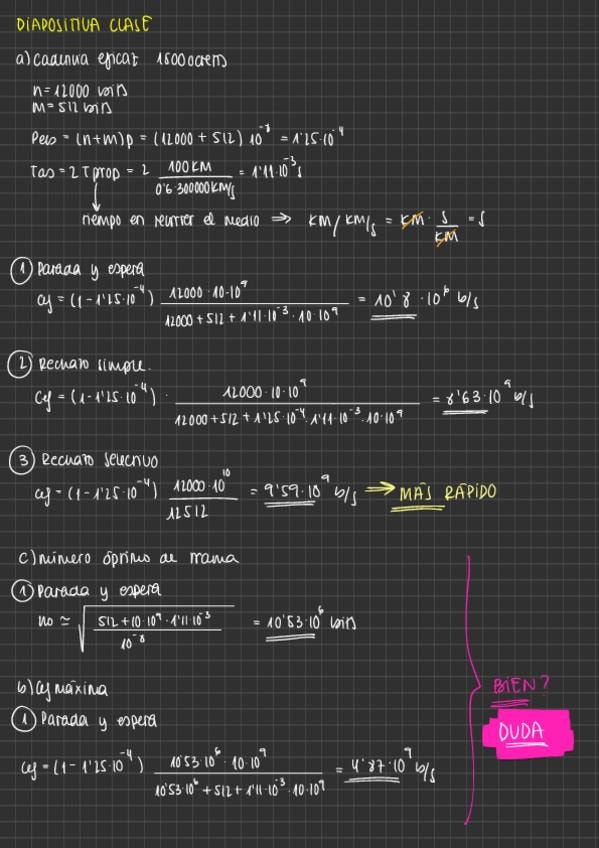 DIAPOSITIVA CLASE
a) Cadencia eficaz 1500 octetos
n = 12000 bits
m = 512 bits
Peis = (n+m)p = (12000 + 512) 10^-8 = 1'25·10^-4
Tas = 2 Tprop = 2 100 KM / 0'6 300000 KM/s = 1'11·10^-3 s
tiempo en recorrer el medio ⇒ KM / KM/s = KM · s/KM = s
① Parada y espera
Cef = (1 - 1'25·10^-4) 12000 · 10·10^9 / 12000 + 512 + 1'11·10^-3 · 10·10^9 = 10'8 · 10^6 b/s
② Rechazo simple.
Cef = (1 - 1'25·10^-4) · 12000 · 10·10^9 / 12000 + 512 + 1'25·10^-4 · 1'11·10^-3 · 10·10^9 = 8'63·10^9 b/s
③ Rechazo selectivo
Cef = (1 - 1'25·10^-4) 12000·10^10 / 12512 = 9'59·10^9 b/s → MÁS RÁPIDO
c) número óptimo de trama
① Parada y espera
no ≃ √(512 + 10·10^9 · 1'11·10^-3 / 10^-8) = 10'53·10^6 bits
b) Cef máxima
BIEN?
① Parada y espera
DUDA
Cef = (1 - 1'25·10^-4) 10'53·10^6 · 10·10^9 / 10'53·10^6 + 512 + 1'11·10^-3 · 10·10^9 = 4'87·10^9 b/s